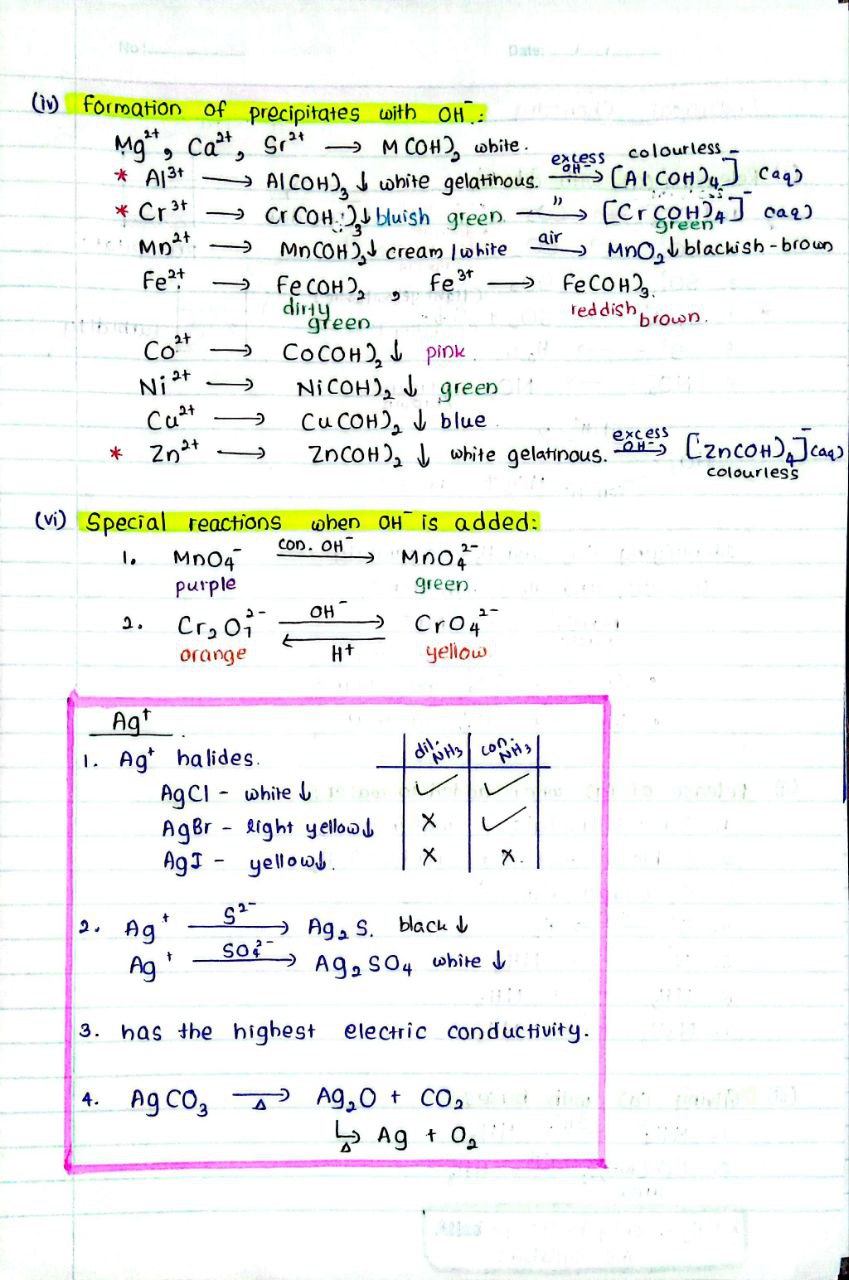 No:
Date:
(iv) Formation of precipitates with OH⁻:
Mg²⁺, Ca²⁺, Sr²⁺ → M(OH)₂ white.
* Al³⁺ → Al(OH)₃ ↓ white gelatinous. excess OH⁻ → [Al(OH)₄]⁻ (aq) colourless
* Cr³⁺ → Cr(OH)₃↓ bluish green. " → [Cr(OH)₄]⁻ (aq) green
Mn²⁺ → Mn(OH)₂↓ cream / white air → MnO₂↓ blackish-brown
Fe²⁺ → Fe(OH)₂ , Fe³⁺ → Fe(OH)₃.
dirty green reddish brown.
Co²⁺ → Co(OH)₂ ↓ pink
Ni²⁺ → Ni(OH)₂ ↓ green
Cu²⁺ → Cu(OH)₂ ↓ blue
* Zn²⁺ → Zn(OH)₂ ↓ white gelatinous. excess OH⁻ → [Zn(OH)₄]⁻(aq)
colourless
(vi) Special reactions when OH⁻ is added:
1. MnO₄⁻ con. OH⁻ → MnO₄²⁻
purple green
2. Cr₂O₇²⁻ OH⁻ ⇌ H⁺ CrO₄²⁻
orange yellow
Ag⁺
1. Ag⁺ halides. dil. NH₃ con. NH₃
AgCl - white ↓ ✓ ✓
AgBr - light yellow↓ × ✓
AgI - yellow↓. × ×.
2. Ag⁺ S²⁻ → Ag₂S. black ↓
Ag⁺ SO₄²⁻ → Ag₂SO₄ white ↓
3. has the highest electric conductivity.
4. AgCO₃ →Δ Ag₂O + CO₂
↳Δ Ag + O₂